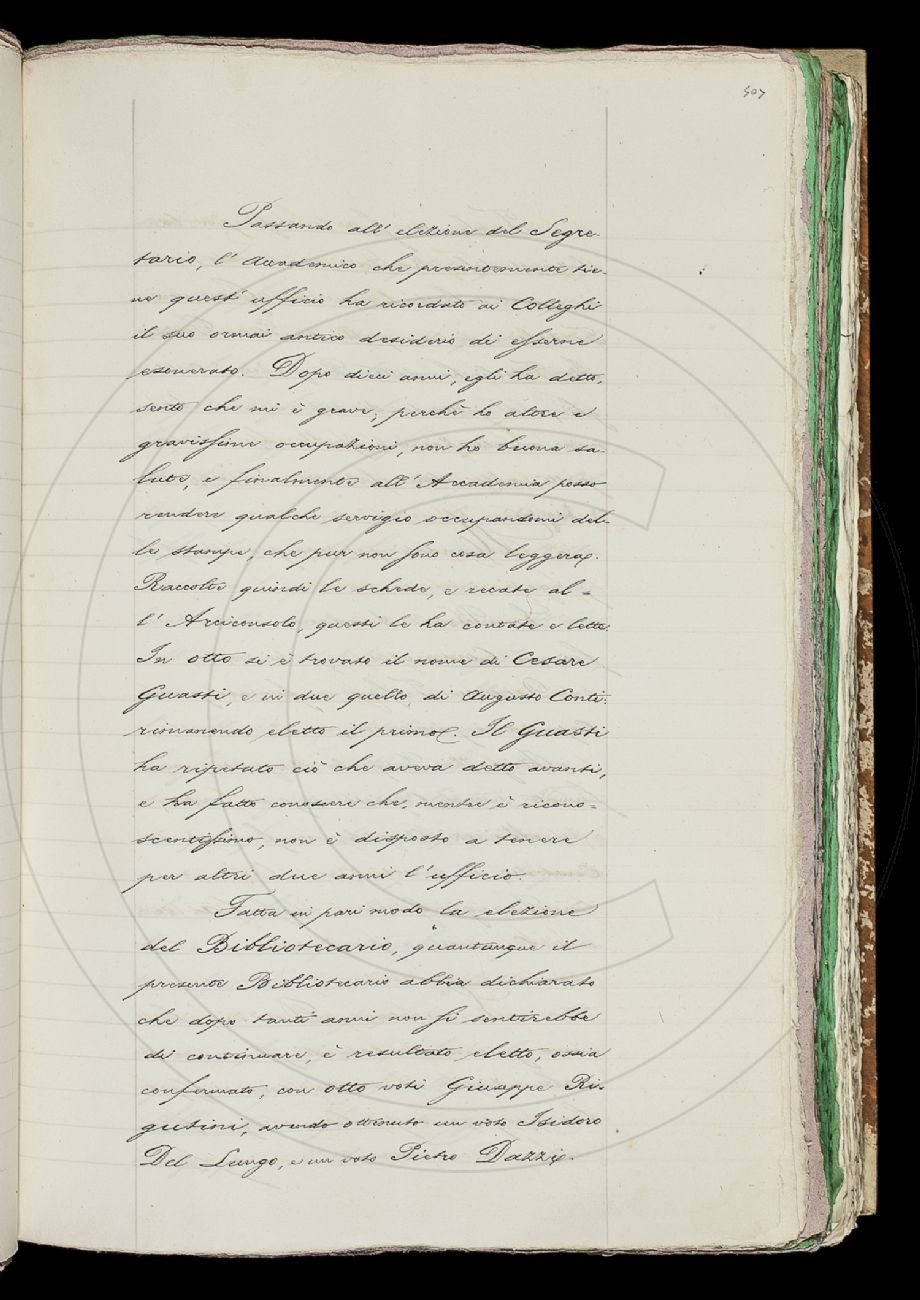 407
Passando all' elezione del Segre-
tario, l' Accademico che presentemente tie-
ne quest' ufficio ha ricordato ai Colleghi
il suo ormai antico desiderio di esserne
esonerato. Dopo dieci anni, egli ha detto,
sento che mi è grave; perchè ho altre e
gravissime occupazioni, non ho buona sa-
lute, e finalmente all' Accademia posso
rendere qualche servigio occupandomi del-
le stampe, che pur non sono cosa leggera.
Raccolte quindi le schede, e recate al-
l' Arciconsolo, questi le ha contate e lette.
In otto si è trovato il nome di Cesare
Guasti, e in due quello di Augusto Conti:
rimanendo eletto il primo. Il Guasti
ha ripetuto ciò che aveva detto avanti,
e ha fatto conoscere che, mentre è ricono-
scentissimo, non è disposto a tenere
per altri due anni l' ufficio.
Fatta in pari modo la elezione
del Bibliotecario, quantunque il
presente Bibliotecario abbia dichiarato
che dopo tanti anni non si sentirebbe
di continuare, è resultato eletto, ossia
confermato, con otto voti Giuseppe Ri-
gutini, avendo ottenuto un voto Isidoro
Del Lungo, e un voto Pietro Dazzi.